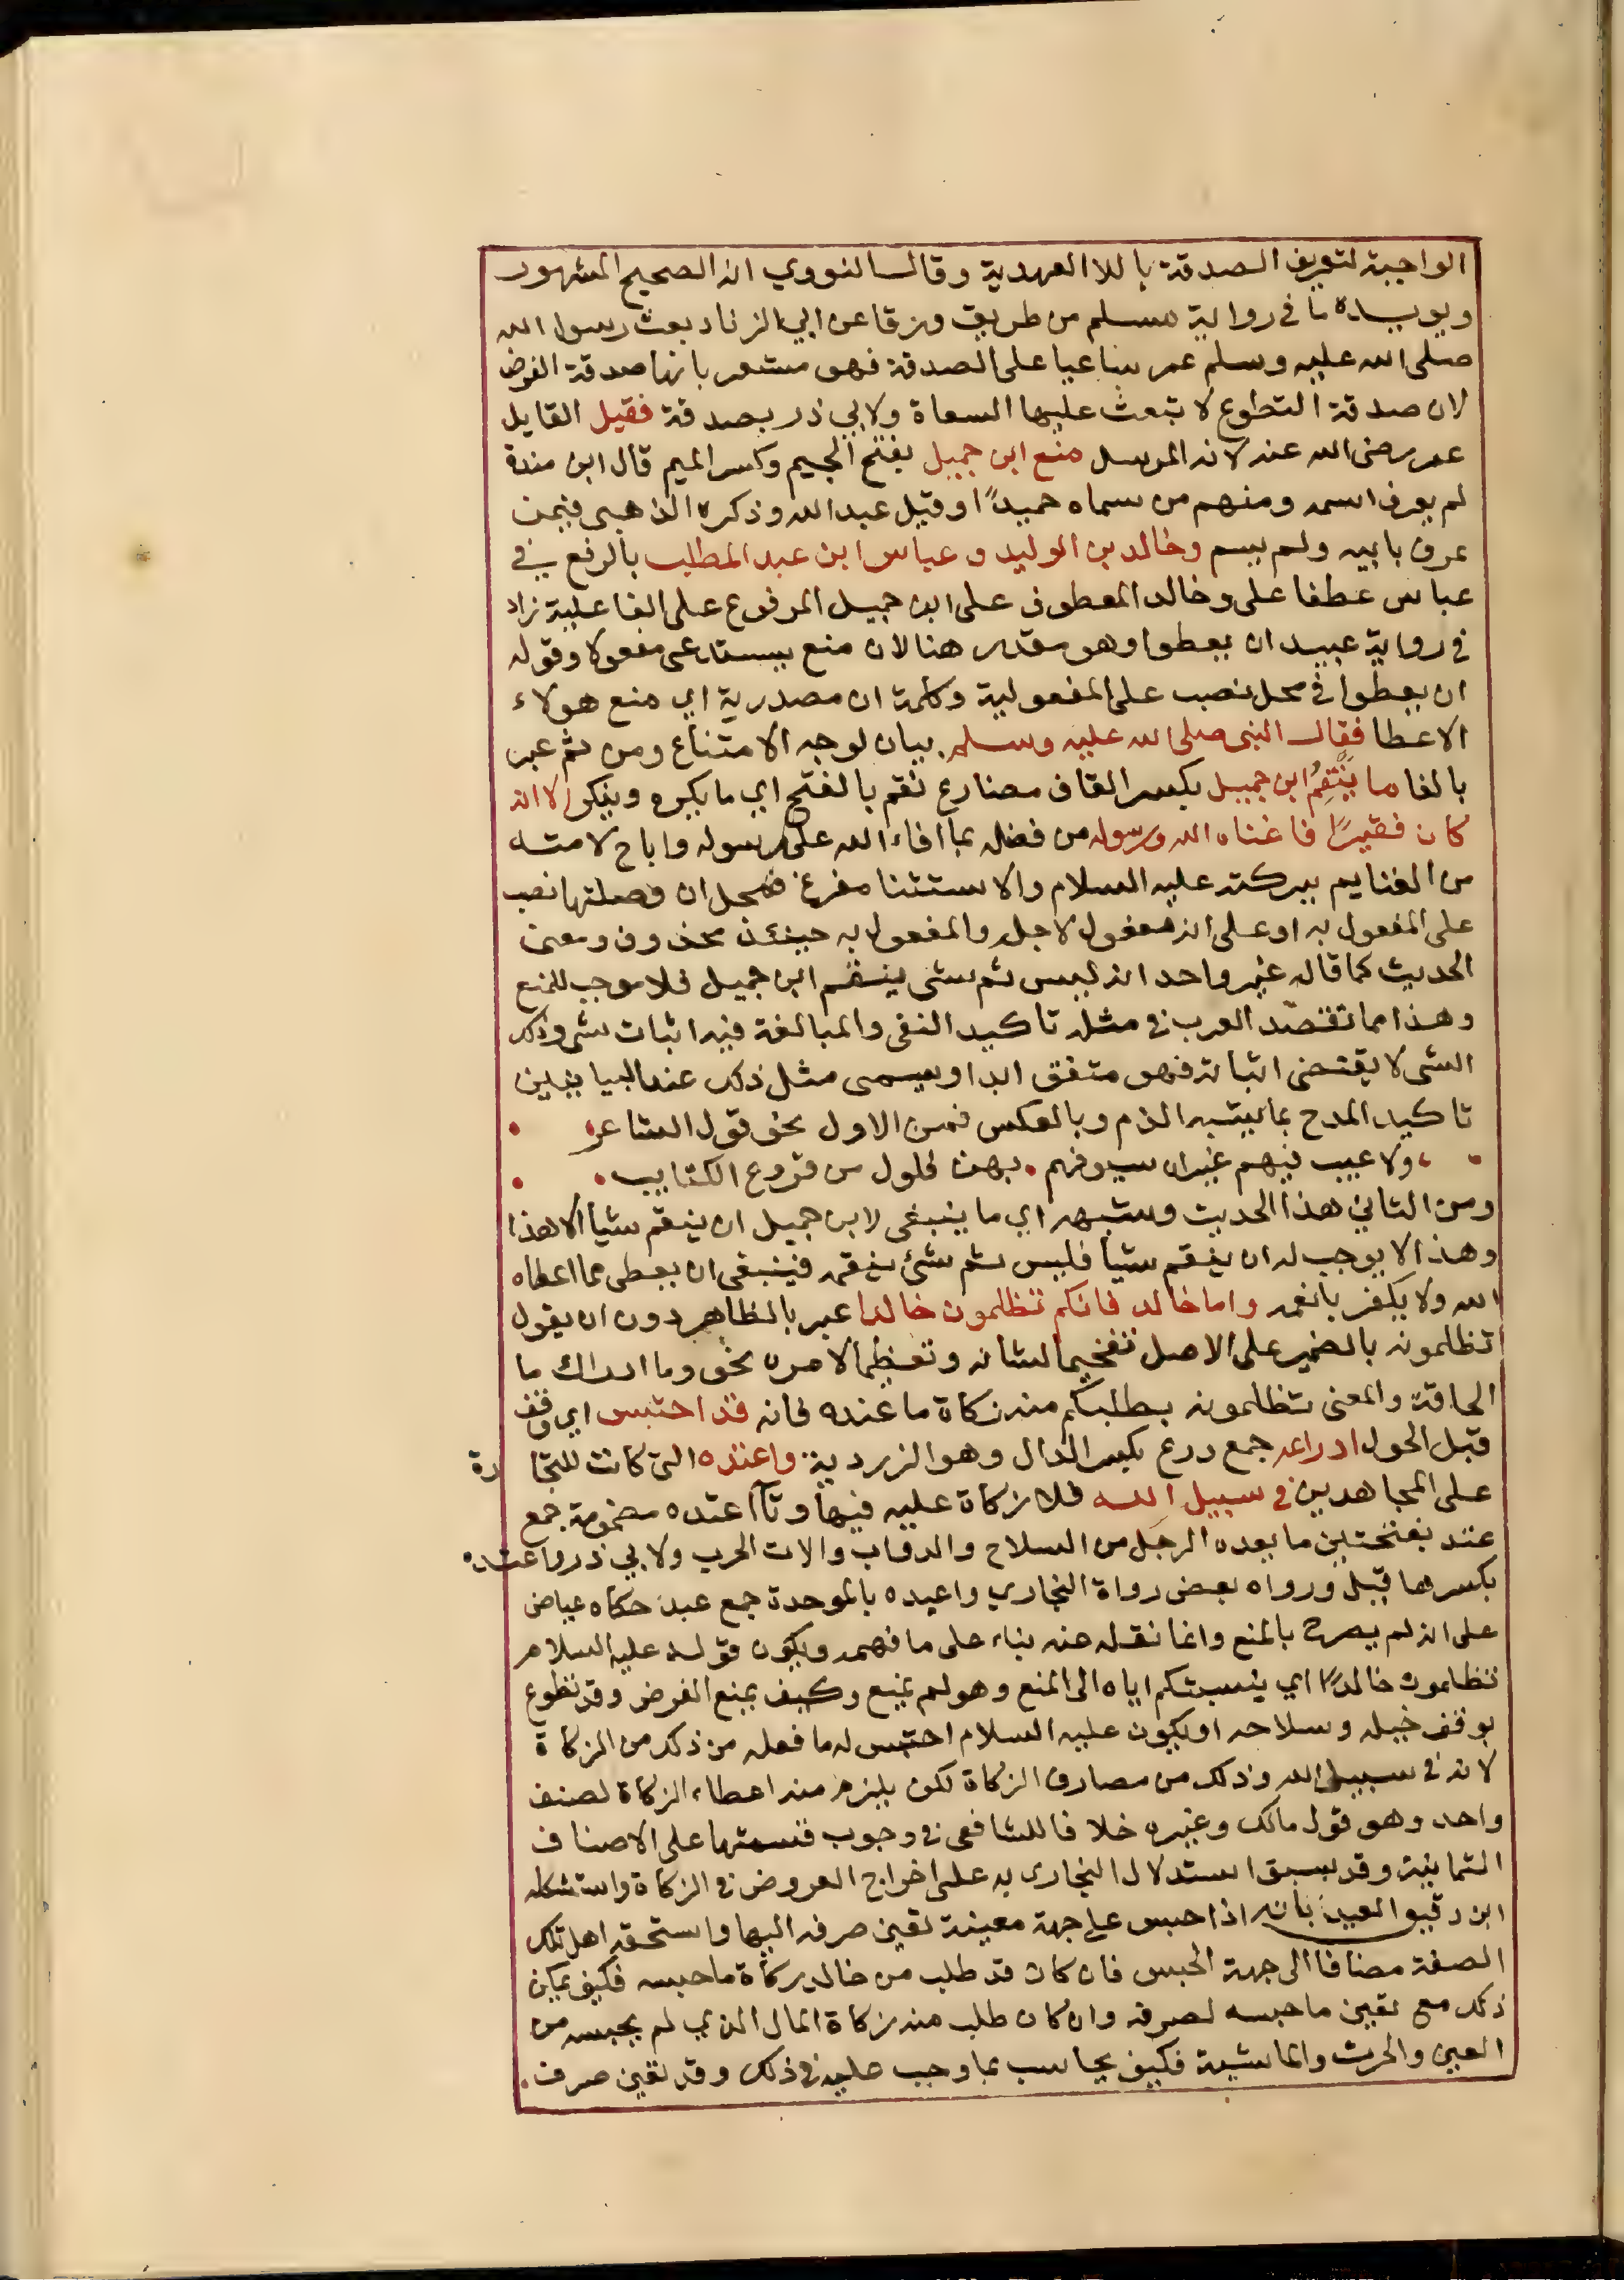 الواجبة لتعريف الصدقة باللا العهدية وقال النووي انه الصحيح المشهور
ويويده ما في رواية مسلم من طريق ورقا عن ابي الزناد بعث رسول الله
صلى الله عليه وسلم عمر ساعيا على الصدقة فهو مشعر بانها صدقة الفرض
لان صدقة التطوع لا تبعث عليها السعاة ولابي ذر بصدقة فقيل القايل
عمر رضى الله عنه لانه المرسل منع ابن جميل بفتح الجيم وكسر الميم قال ابن مندة
لم يعرف اسمه ومنهم من سماه حميدًا وقيل عبد الله وذكره الذهبي فيمن
عرف بابيه ولم يسم وخالد بن الوليد وعباس ابن عبد المطلب بالرفع في
عباس عطفا على وخالد المعطوف على ابن جميل المرفوع على الفاعلية زاد
في رواية عبيد ان يعطوا وهو مقدر هنا لان منع يستدعى مفعولا وقوله
ان يعطوا في محل نصب على المفعولية وكلمة ان مصدرية اي منع هولاء
الاعطا فقال النبى صلى الله عليه وسلم بيان لوجه الامتناع ومن ثم عبر
بالفا ما يَنْقِمُ ابن جميل بكسر القاف مضارع نقم بالفتح اي ما يكره وينكر الا انه
كان فقيرًا فاغناه الله ورسوله من فضله بما افاء الله على رسوله واباح لامته
من الغنايم ببركته عليه السلام والاستثنا مفرغ فمحل ان وصلتها نصب
على المفعول به او على انه مفعول لاجله والمفعول به حينئذ محذوف ومعنى
الحديث كما قاله غير واحد انه ليس ثم شى ينقم ابن جميل فلا موجب للمنع
وهذا مما تقصد العرب في مثله تاكيد النفى والمبالغة فيه اثبات شى وذلك
الشى لا يقتضى اثباته فهو متفق ابدا ويسمى مثل ذلك عند البيانيين
تاكيد المدح بما يشبه الذم وبالعكس فمن الاول نحو قول الشاعر
ولا عيب فيهم غير ان سيوفهم . بهن فلول من قروع الكتايب .
ومن الثاني هذا الحديث وشبهه اي ما ينبغى لابن جميل ان ينقم شيأ الا هذا
وهذا لا يوجب له ان ينقم شيأ فليس ثم شئ ينقمه فينبغى ان يعطى مما اعطاه
الله ولا يكفر بانعمه واما خالد فانكم تظلمون خالدا عبر بالظاهر دون ان يقول
تظلمونه بالضمير على الاصل تفخيما لشانه وتعظيما لامره نحو وما ادراك ما
الحاقة والمعنى تظلمونه بطلبكم منه زكاة ما عنده فانه قد احتبس اي وقف
قبل الحول ادراعه جمع درع بكسر الدال وهو الزردية واعتده التى كانت للتجارة
على المجاهدين في سبيل الله فلا زكاة عليه فيها وتآ اعتده مضمومة جمع
عتد بفتحتين ما يعده الرجل من السلاح والدواب والات الحرب ولابي ذر واعتده
بكسرها قيل ورواه بعض رواة البخاري واعبده بالموحدة جمع عبد حكاه عياض
على انه لم يصرح بالمنع وانما نقله عنه بناء على ما فهمه ويكون قوله عليه السلام
تظلمون خالدًا اي ينسبتكم اياه الى المنع وهو لم يمنع وكيف يمنع الفرض وقد تطوع
بوقف خيله وسلاحه او يكون عليه السلام احتبس له ما فعله من ذلك من الزكاة
لانه في سبيل الله وذلك من مصارف الزكاة لكن يلزم منه اعطاء الزكاة لصنف
واحد وهو قول مالك وغيره خلافا للشافعى في وجوب قسمتها على الاصناف
الثمانية وقد سبق استدلال البخارى به على اخراج العروض في الزكاة واستشكله
ابن دقيق العيد بانه اذا حبس على جهة معينة تعين صرفه اليها واستحقه اهل تلك
الصفة مضافا الى جهة الحبس فان كان قد طلب من خالد زكاة ما حبسه فكيف يمكن
ذلك مع تعين ما حبسه لصرفه وان كان طلب منه زكاة المال الذي لم يحبسه من
العين والحرث والماشية فكيف يحاسب بما وجب عليه في ذلك وقد تعين صرف.